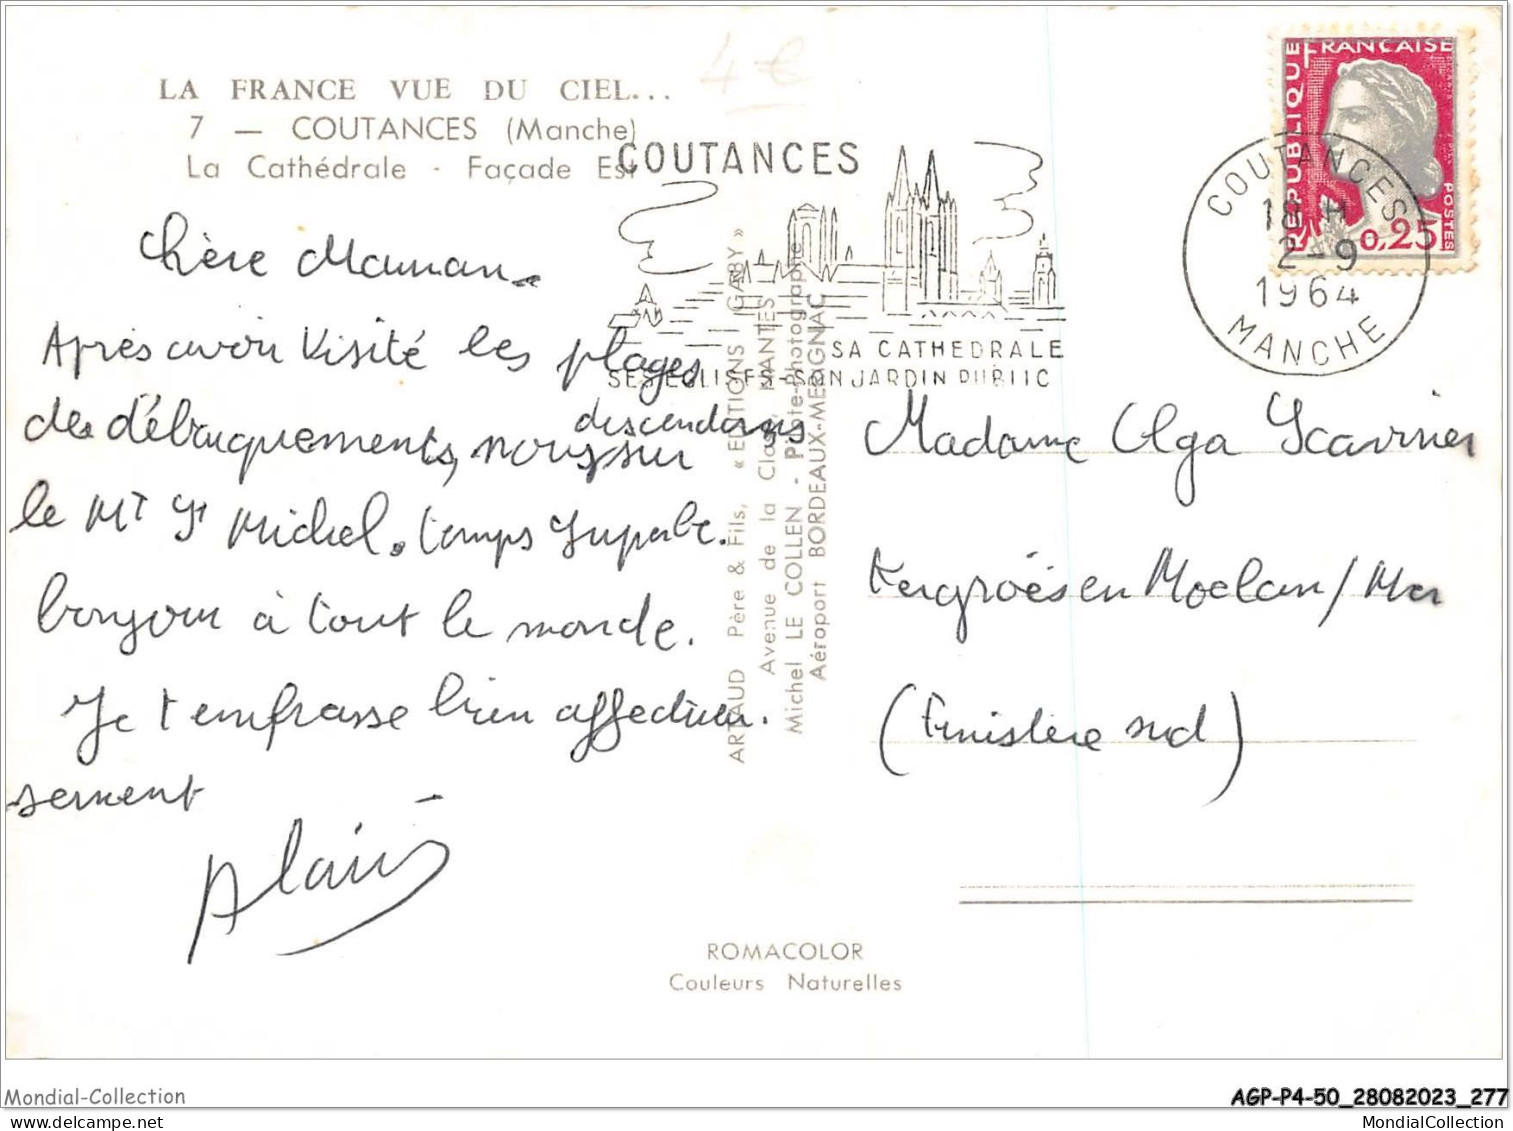 4€
LA FRANCE VUE DU CIEL...
7 — COUTANCES (Manche)
La Cathédrale - Façade Est
COUTANCES
SA CATHEDRALE
SES EGLISES - SON JARDIN PUBLIC
REPUBLIQUE FRANÇAISE
0,25
POSTES
COUTANCES
18 H
2-9
1964
MANCHE
Chère Maman.
Après avoir visité les plages
des débarquements, nous descendons sur
le Mt St Michel. temps superbe.
bonjour à tout le monde.
Je t'embrasse bien affectueu.
sement
Alain
ARTAUD Père & Fils, « EDITIONS GABY »
Avenue de la NANTES
Michel LE COLLEN - Pilote-Photographe
Aéroport BORDEAUX-MERIGNAC
Madame Olga
en Moelan/Mer
(Finistère sud)
ROMACOLOR
Couleurs Naturelles
Mondial-Collection
AGP-P4-50_28082023_277
MondialCollection